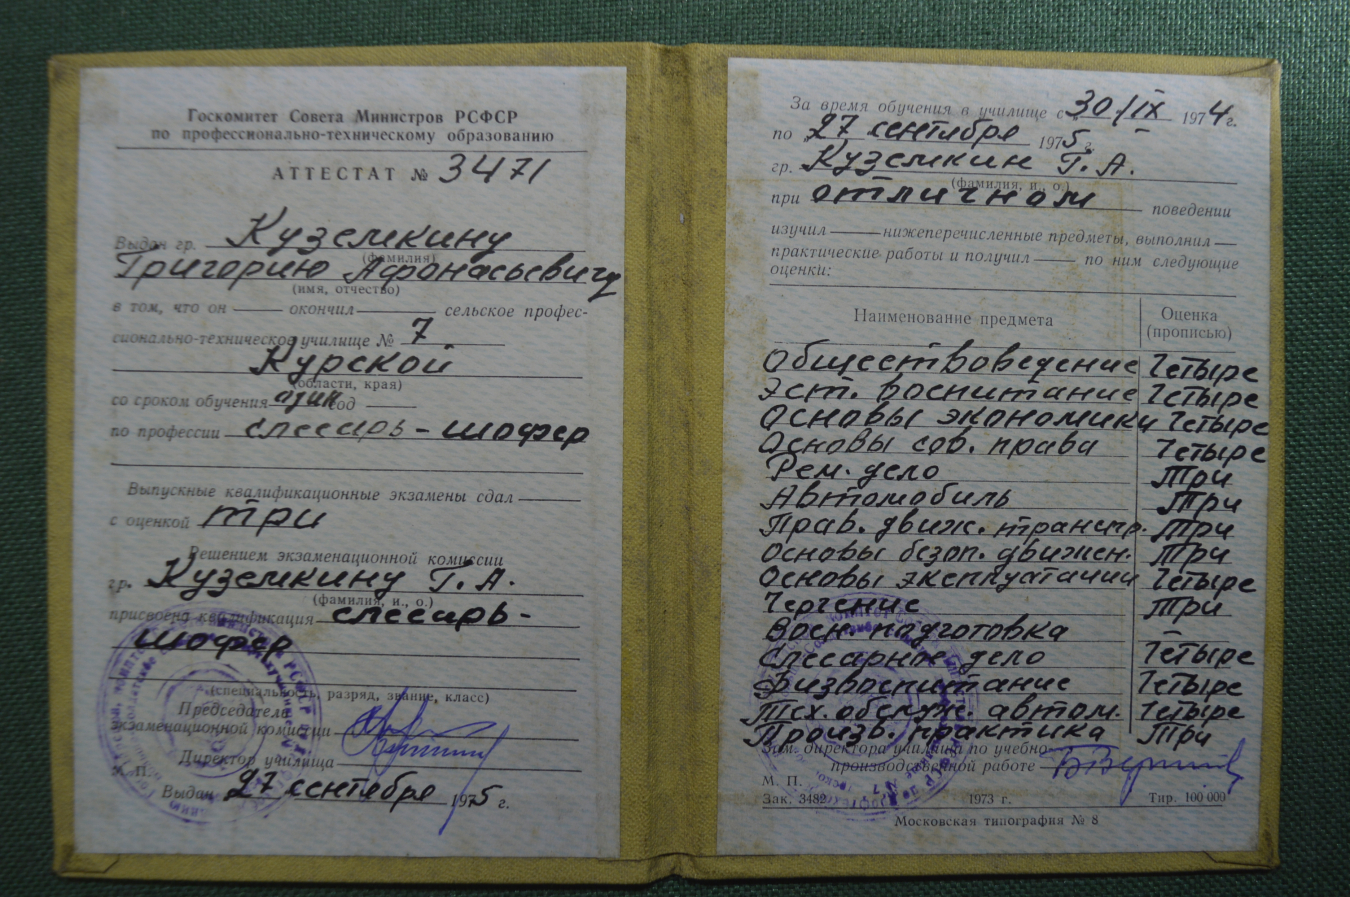 Госкомитет Совета Министров РСФСР
по профессионально-техническому образованию
АТТЕСТАТ № 3471
Выдан гр. Куземкину
(фамилия)
Григорию Афонасьевичу
(имя, отчество)
в том, что он окончил сельское профес-
сионально-техническое училище № 7
Курской
(области, края)
со сроком обучения один год
по профессии слесарь-шофер
Выпускные квалификационные экзамены сдал
с оценкой три
Решением экзаменационной комиссии
гр. Куземкину Г. А.
(фамилия, и., о.)
присвоена квалификация слесарь-
шофер
(специальность, разряд, звание, класс)
Председатель
экзаменационной комиссии
Директор училища
М. П.
Выдан 27 сентября 1975 г.
За время обучения в училище с 30/IX 1974 г.
по 27 сентября 1975 г.
гр. Куземкин Г. А.
(фамилия, и., о.)
при отличном поведении
изучил нижеперечисленные предметы, выполнил
практические работы и получил по ним следующие
оценки:
Наименование предмета Оценка (прописью)
Обществоведение Четыре
Эст. воспитание Четыре
Основы экономики Четыре
Основы сов. права Четыре
Рем. дело Три
Автомобиль Три
Прав. движ. транспр. Три
Основы безоп. движен. Три
Основы эксплуатации Четыре
Черчение Три
Воен. подготовка –
Слесарное дело Четыре
Физвоспитание Четыре
Тех. обслуж. автом. Четыре
Произв. практика Три
Зам. директора училища по учебно-
производственной работе
М. П.
Зак. 3482 1973 г. Тир. 100 000
Московская типография № 8